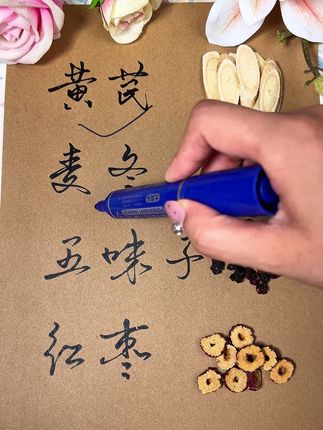 黄芪
麦冬
五味子
红枣